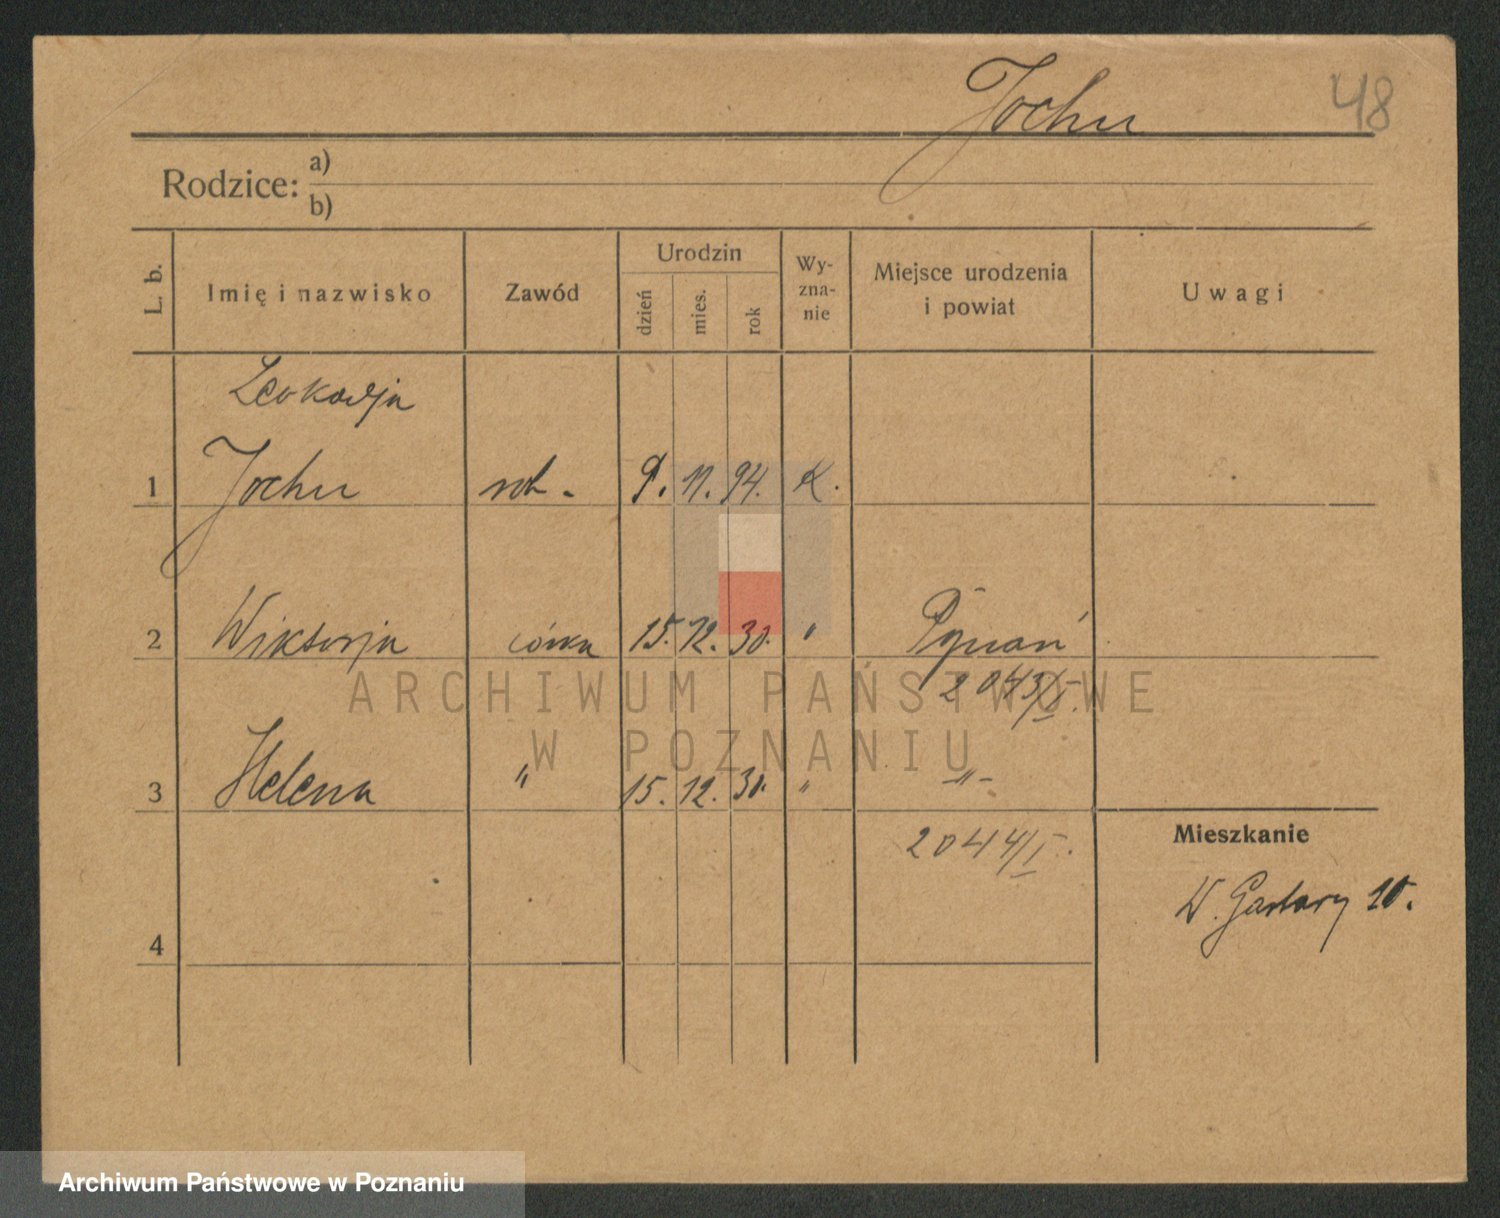 Jochu 48
Rodzice: a)
b)
L. b. Imię i nazwisko Zawód Urodzin dzień mies. rok Wy-zna-nie Miejsce urodzenia i powiat Uwagi
Leokadja
1 Jochu rob. 9. 11. 94. K.
2 Wiktorja córka 15. 12. 30. " Poznań
2043/I.
3 Helena " 15. 12. 30. " -"-
2044/I.
Mieszkanie
W. Garbary 10.
4
ARCHIWUM PAŃSTWOWE
W POZNANIU
Archiwum Państwowe w Poznaniu